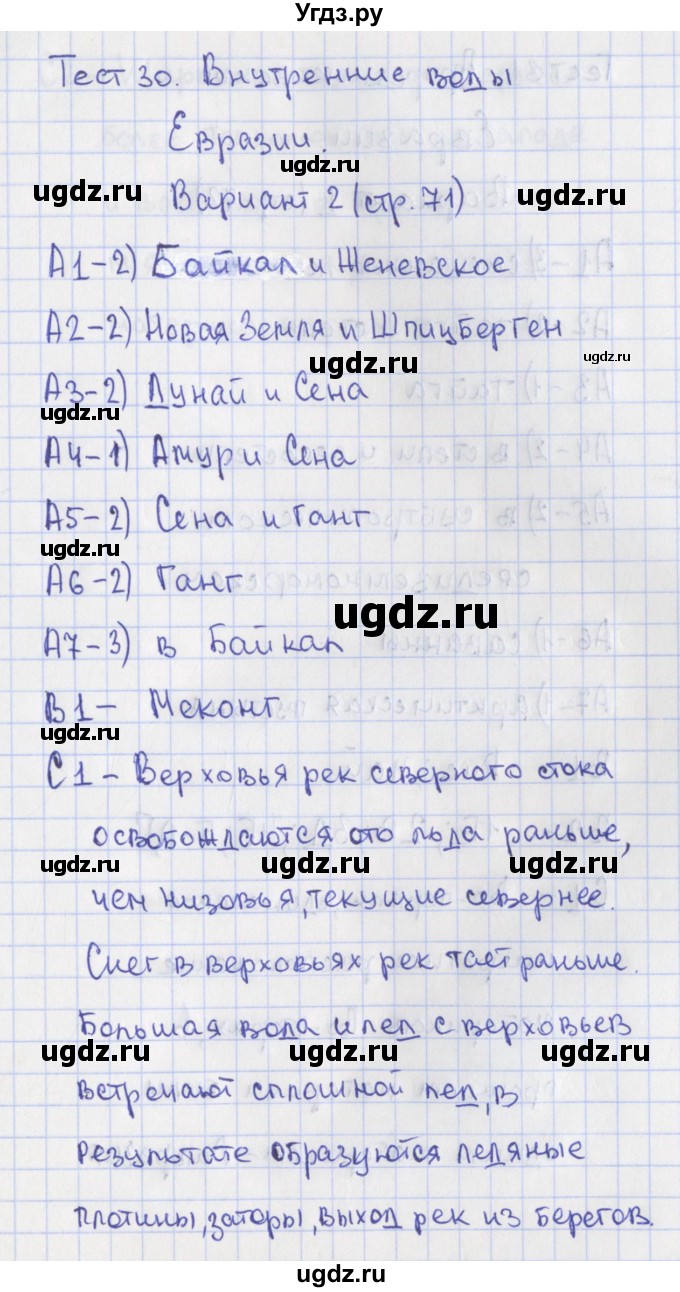 Угдз.ру
Тест 30. Внутренние воды
Евразии.
ugdz.ru
ugdz.ru
Вариант 2 (стр. 71)
А1-2) Байкал и Женевское
А2-2) Новая Земля и Шпицберген
ugdz.ru
ugdz.ru
А3-2) Дунай и Сена
ugdz.ru
А4-1) Амур и Сена
А5-2) Сена и Ганг
ugdz.ru
А6-2) Ганг
ugdz.ru
А7-3) в Байкал
В1- Меконг
ugdz.ru
С1- Верховья рек северного стока
освобождаются ото льда раньше,
ugdz.ru
ugdz.ru
ugdz.ru
чем низовья, текущие севернее.
Снег в верховьях рек тает раньше.
Большая вода и лед с верховьев
ugdz.ru
ugdz.ru
ugdz.ru
встречают сплошной лед, в
результате образуются ледяные
плотины, заторы, выход рек из берегов.
ugdz.ru